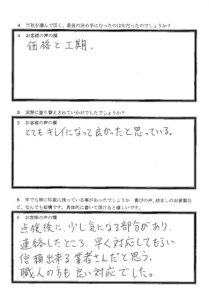 4 当社を選んで頂く、最後の決め手になったのは何だったのでしょうか?
4 お客様の声の欄
価格と工期.
5 実際に塗り替えされていかがでしたでしょうか?
5 お客様の声の欄
とてもキレイになって良かったと思っている。
6 中でも特に印象に残っている事があったでしょうか
ど、なんでも結構です。具体的に書いて頂けると嬉しいです。
6 お客様の声の欄
点検後に、少し気になる部分があり、
連絡したところ、早く対応してもらい
信頼出来る業者さんだと思う。
職人の方も良い対応でした。